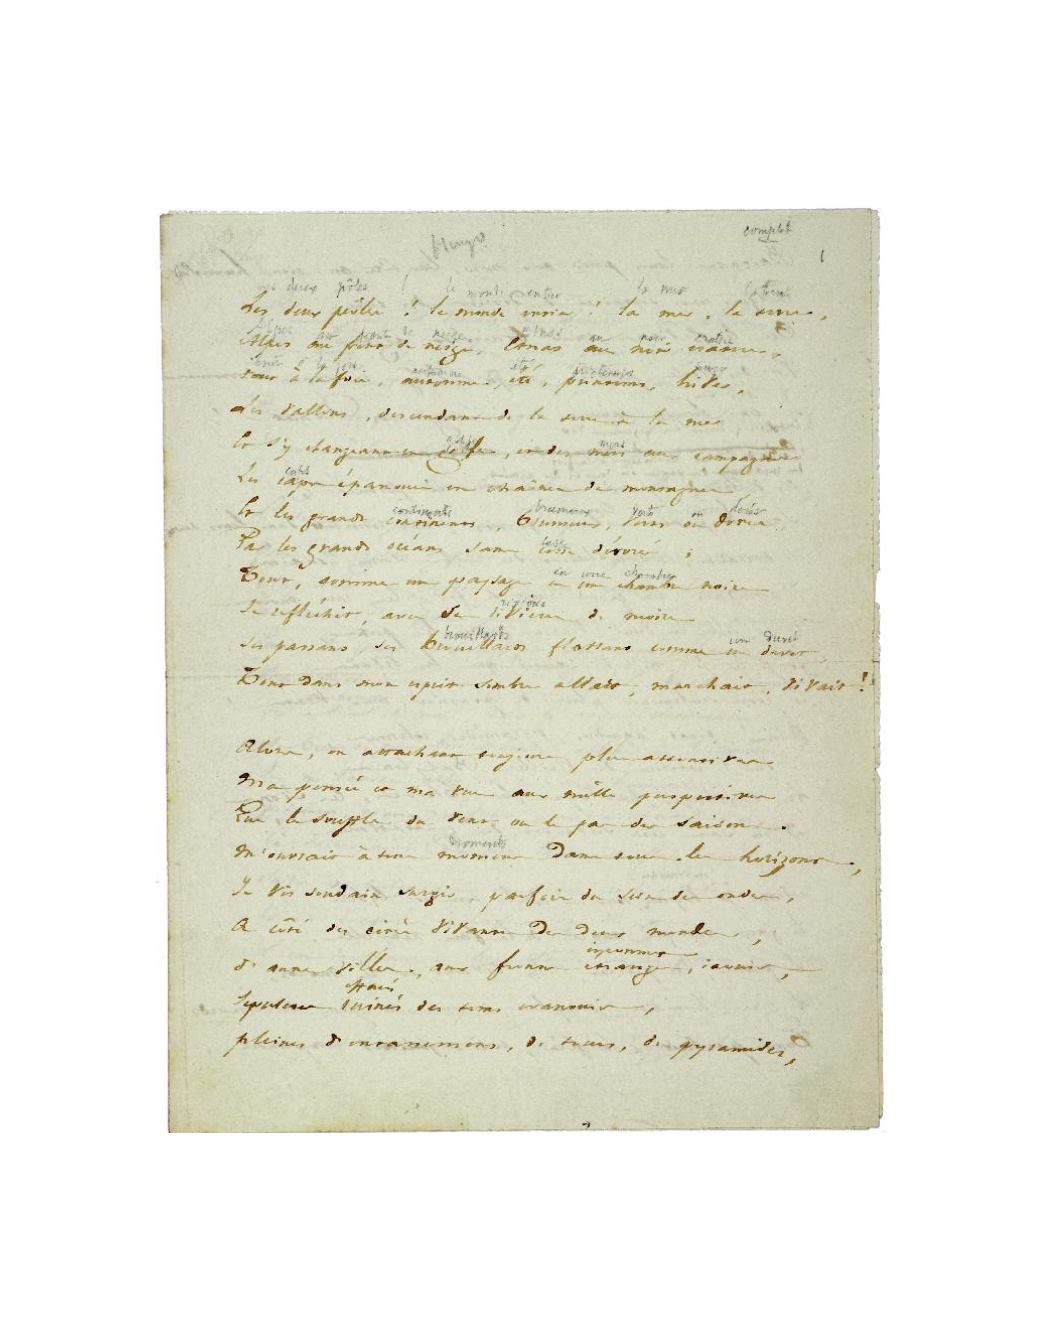 Hugo
complet
1
les deux pôles ! le monde entier la mer la terre
Les deux pôles ! le monde entier ! la mer, la terre,
Alpes aux fronts de neige, etnas au noir cratère
Alpes aux fronts de neige, Etnas au noir cratère,
à la fois automne été printemps hiver
Tout à la fois, automne, été, printems, hiver,
Les vallons, descendant de la terre à la mer
golfe mers
Et s'y changeant en golfe, et des mers aux campagnes
caps
Les caps épanouis en chaînes de montagnes
continents brumeux verts ou dorés
Et les grands continens, brumeux, verts ou dorés
cesse
Par les grands océans sans cesse dévorés ;
en une chambre
Tout, comme un paysage en une chambre noire
rivières
Se réfléchit, avec ses rivières de moire
brouillards un duvet
Ses passans, ses brouillards flottans comme un duvet,
Tout dans mon esprit sombre allait, marchait, vivait !
Alors, en attachant toujours plus attentives
Ma pensée et ma vue aux mille perspectives
Que le souffle du vent ou le pas des saisons
moments
M'ouvrait à tous momens dans tous les horizons,
Je vis soudain surgir, parfois du sein des ondes,
A côté des cités vivantes des deux mondes,
inconnus
d'autres villes, aux fronts étranges, inouis,
effacés
Sépulcres ruinés des tems évanouis,
pleines d'entassemens, de tours, de pyramides,